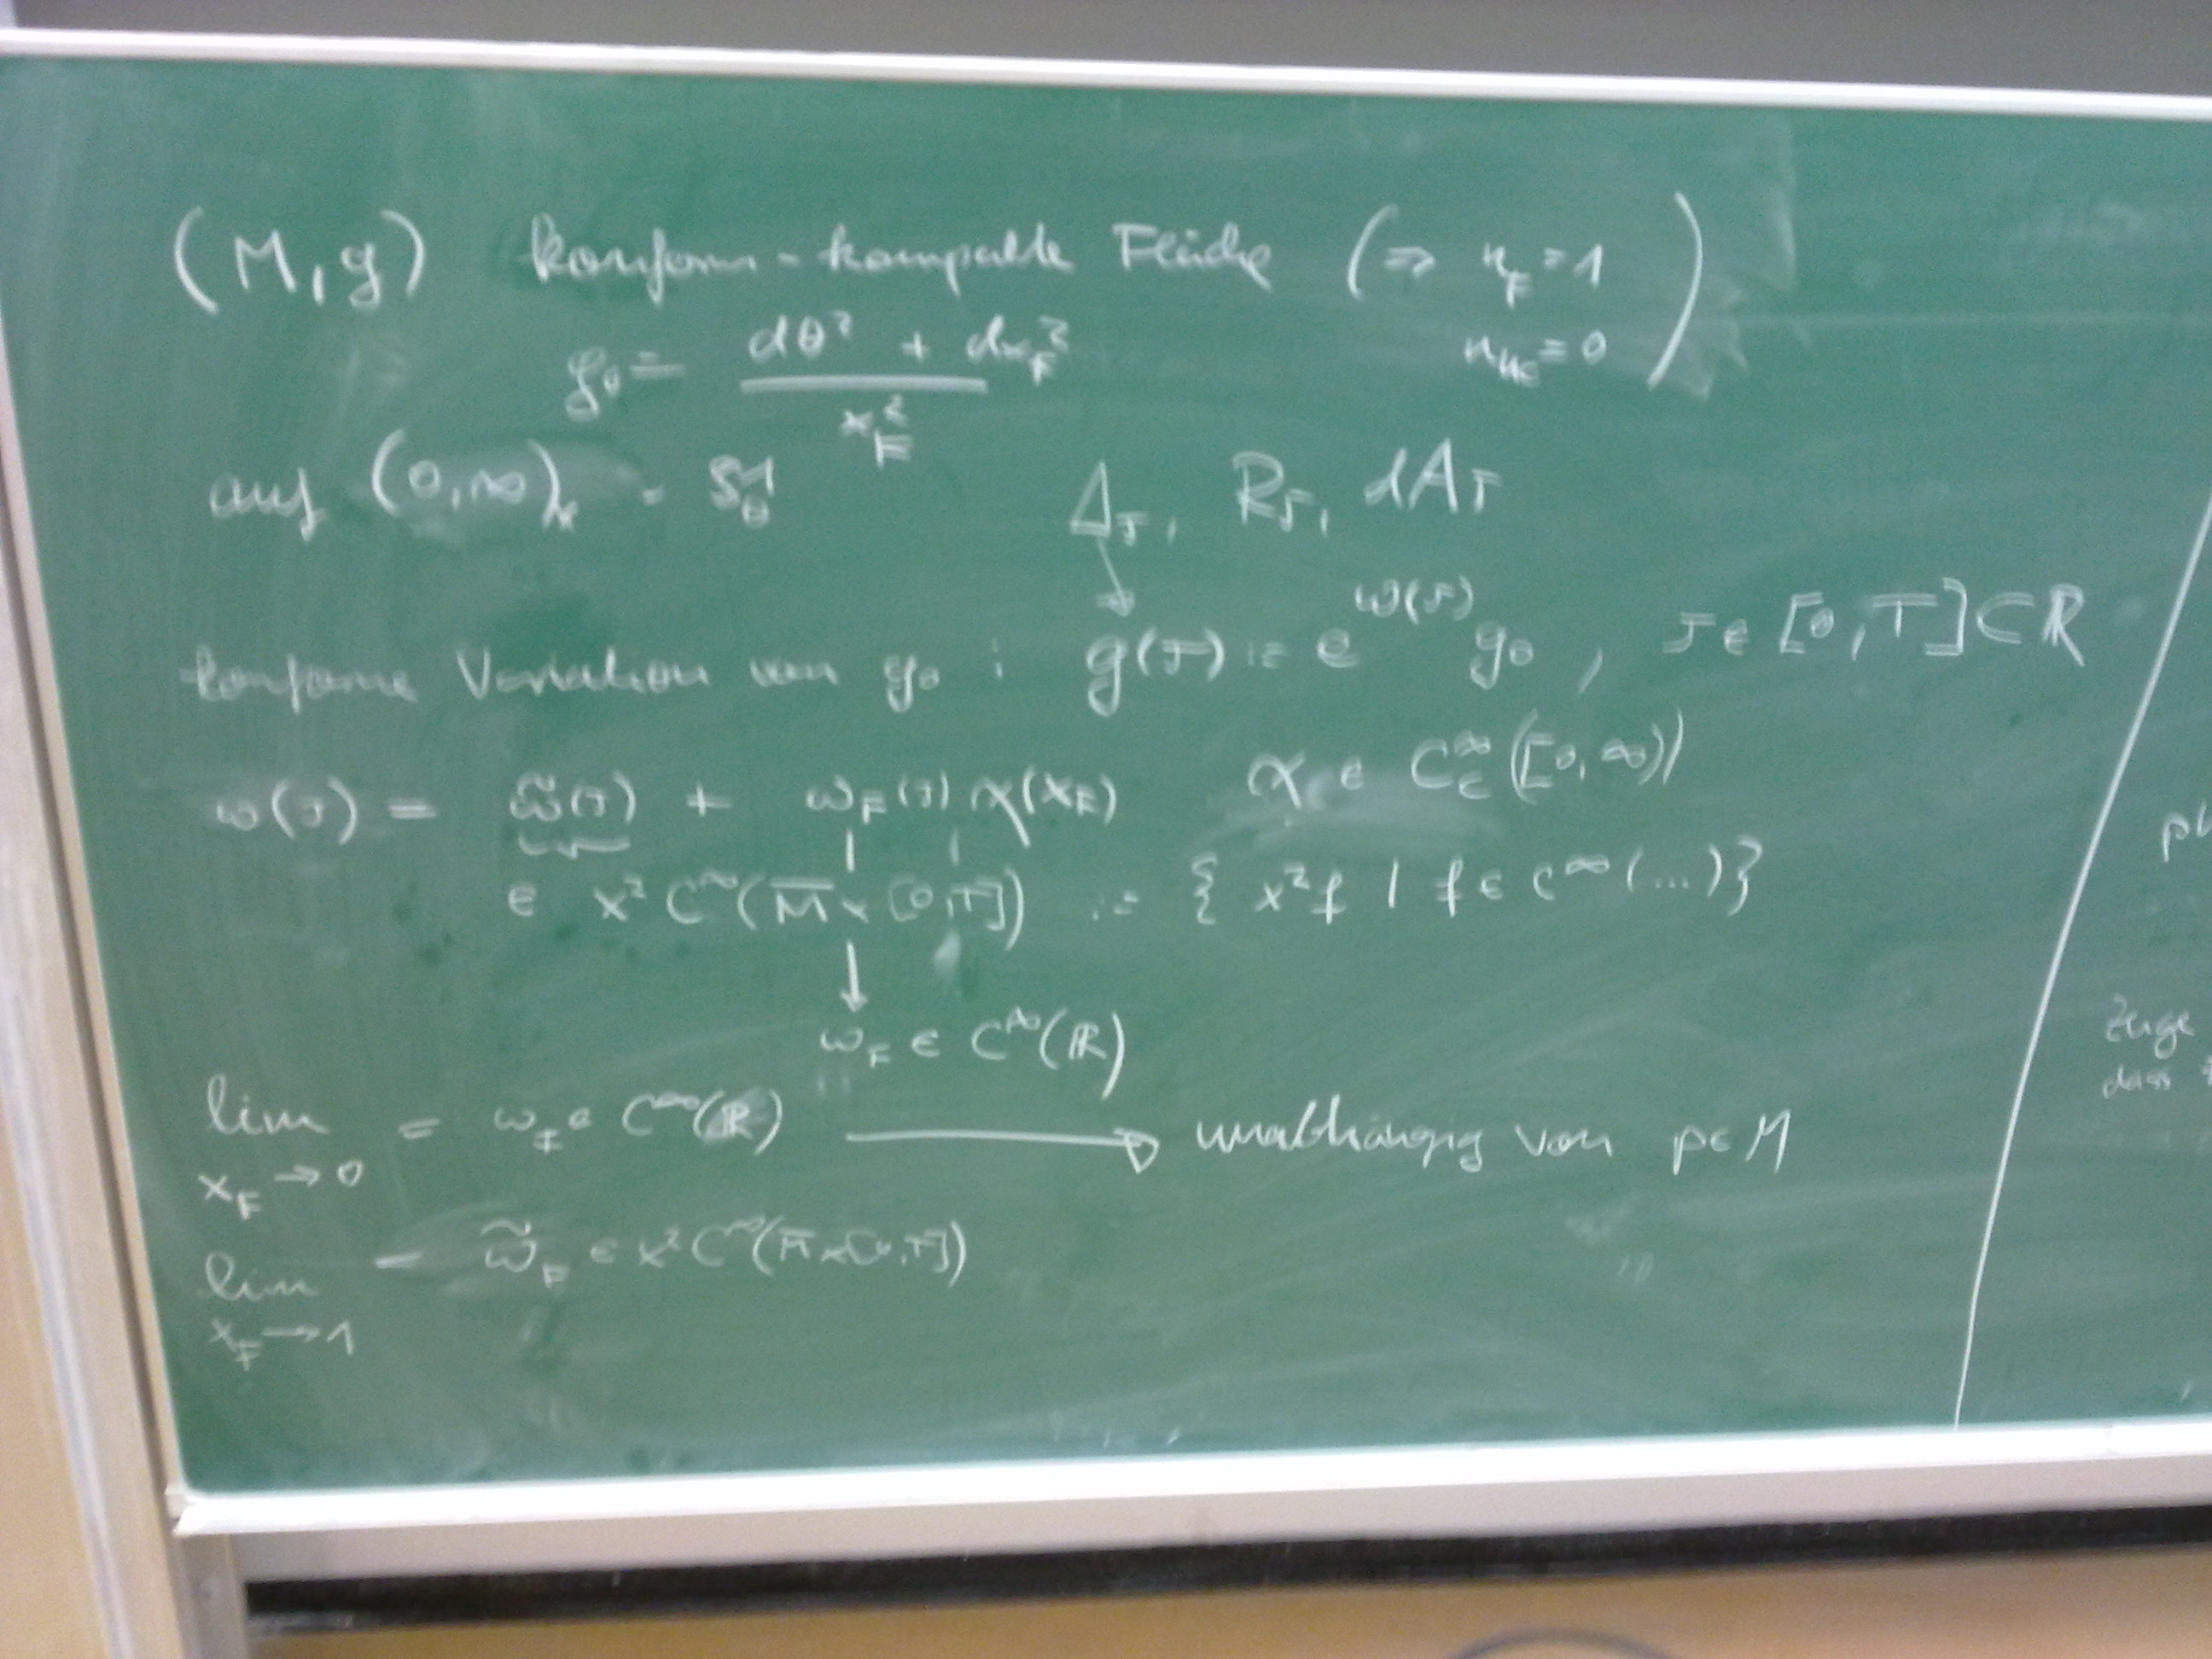 (M, g) konform-kompakte Fläche (⇒ n_F = 1
n_hc = 0)
g₀ = (dθ² + dx_F²) / x_F²
auf (0,∞)_x × S¹_θ
Δ_τ, R_τ, dA_τ
konforme Variation von g₀ : g(τ) := e^{ω(τ)} g₀, τ ∈ [0,T] ⊂ ℝ
ω(τ) = ω̃(τ) + ω_F(τ) χ(x_F) χ ∈ C_c^∞([0,∞))
∈ x² C^∞(M̄ × [0,T]) := { x² f | f ∈ C^∞(...)}
ω_F ∈ C^∞(ℝ)
lim = ω_F ∈ C^∞(ℝ) → unabhängig von p ∈ M
x_F → 0
lim = ω̃_F ∈ x² C^∞(M̄ × [0,T])
x_F → 1
Zeige
dass